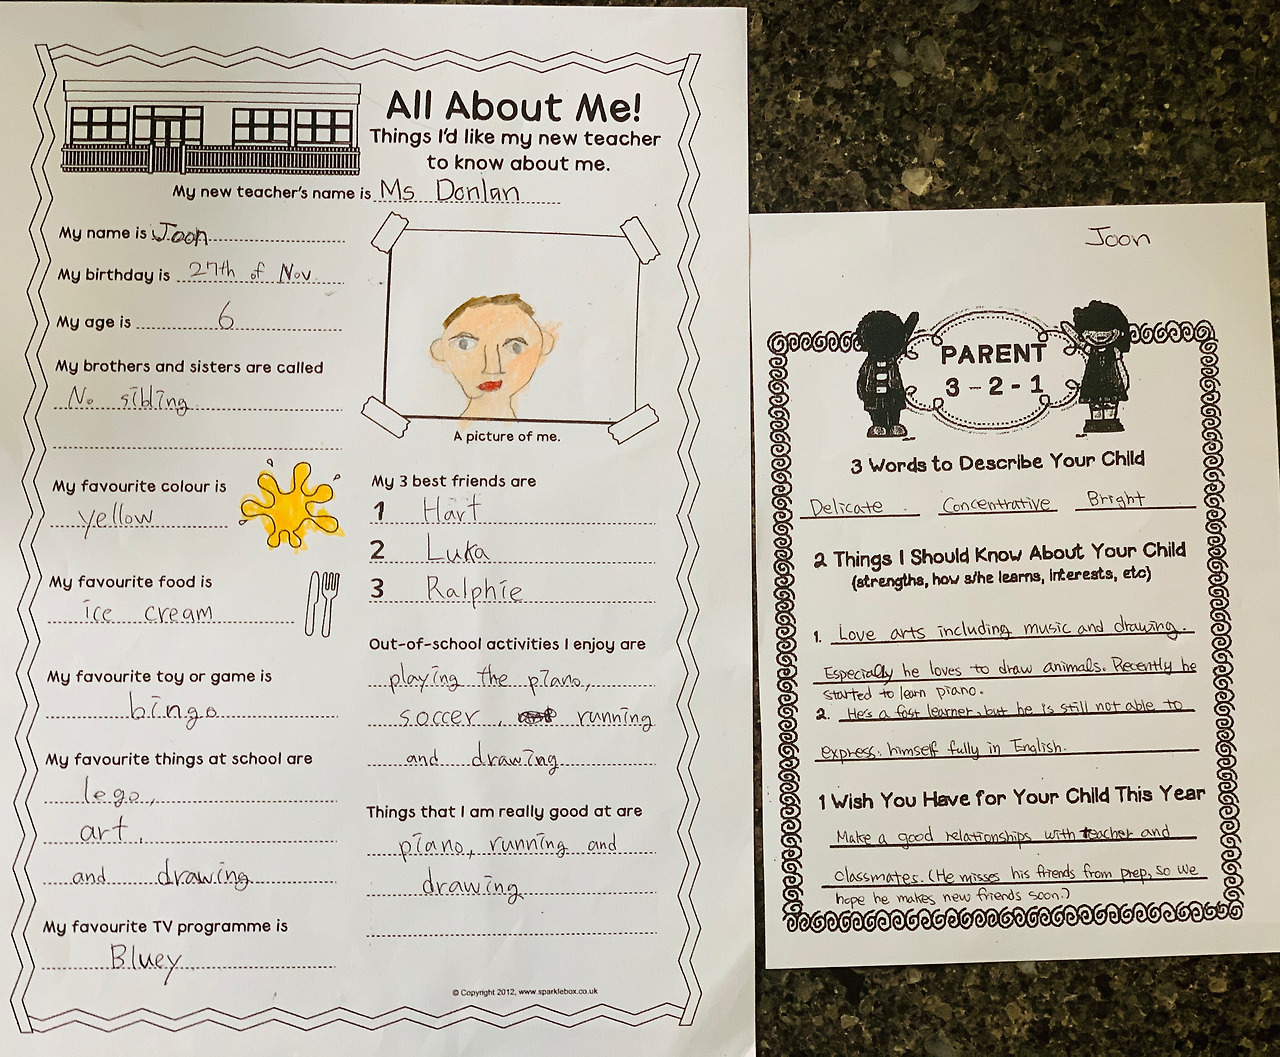 All About Me!
Things I'd like my new teacher
to know about me.
My new teacher's name is Ms Donlan
My name is Joon
My birthday is 27th of Nov
My age is 6
My brothers and sisters are called
No sibling
My favourite colour is
yellow
My favourite food is
ice cream
My favourite toy or game is
bingo
My favourite things at school are
lego,
art,
and drawing
My favourite TV programme is
Bluey
A picture of me.
My 3 best friends are
1 Hart
2 Luka
3 Ralphie
Out-of-school activities I enjoy are
playing the piano,
soccer, running
and drawing
Things that I am really good at are
piano, running and
drawing
© Copyright 2012, www.sparklebox.co.uk
Joon
PARENT
3-2-1
3 Words to Describe Your Child
Delicate Concentrative Bright
2 Things I Should Know About Your Child
(strengths, how s/he learns, interests, etc)
1. Love arts including music and drawing.
Especially he loves to draw animals. Recently he
started to learn piano.
2. He's a fast learner, but he is still not able to
express himself fully in English.
1 Wish You Have for Your Child This Year
Make a good relationships with teacher and
classmates. (He misses his friends from prep, so we
hope he makes new friends soon.)